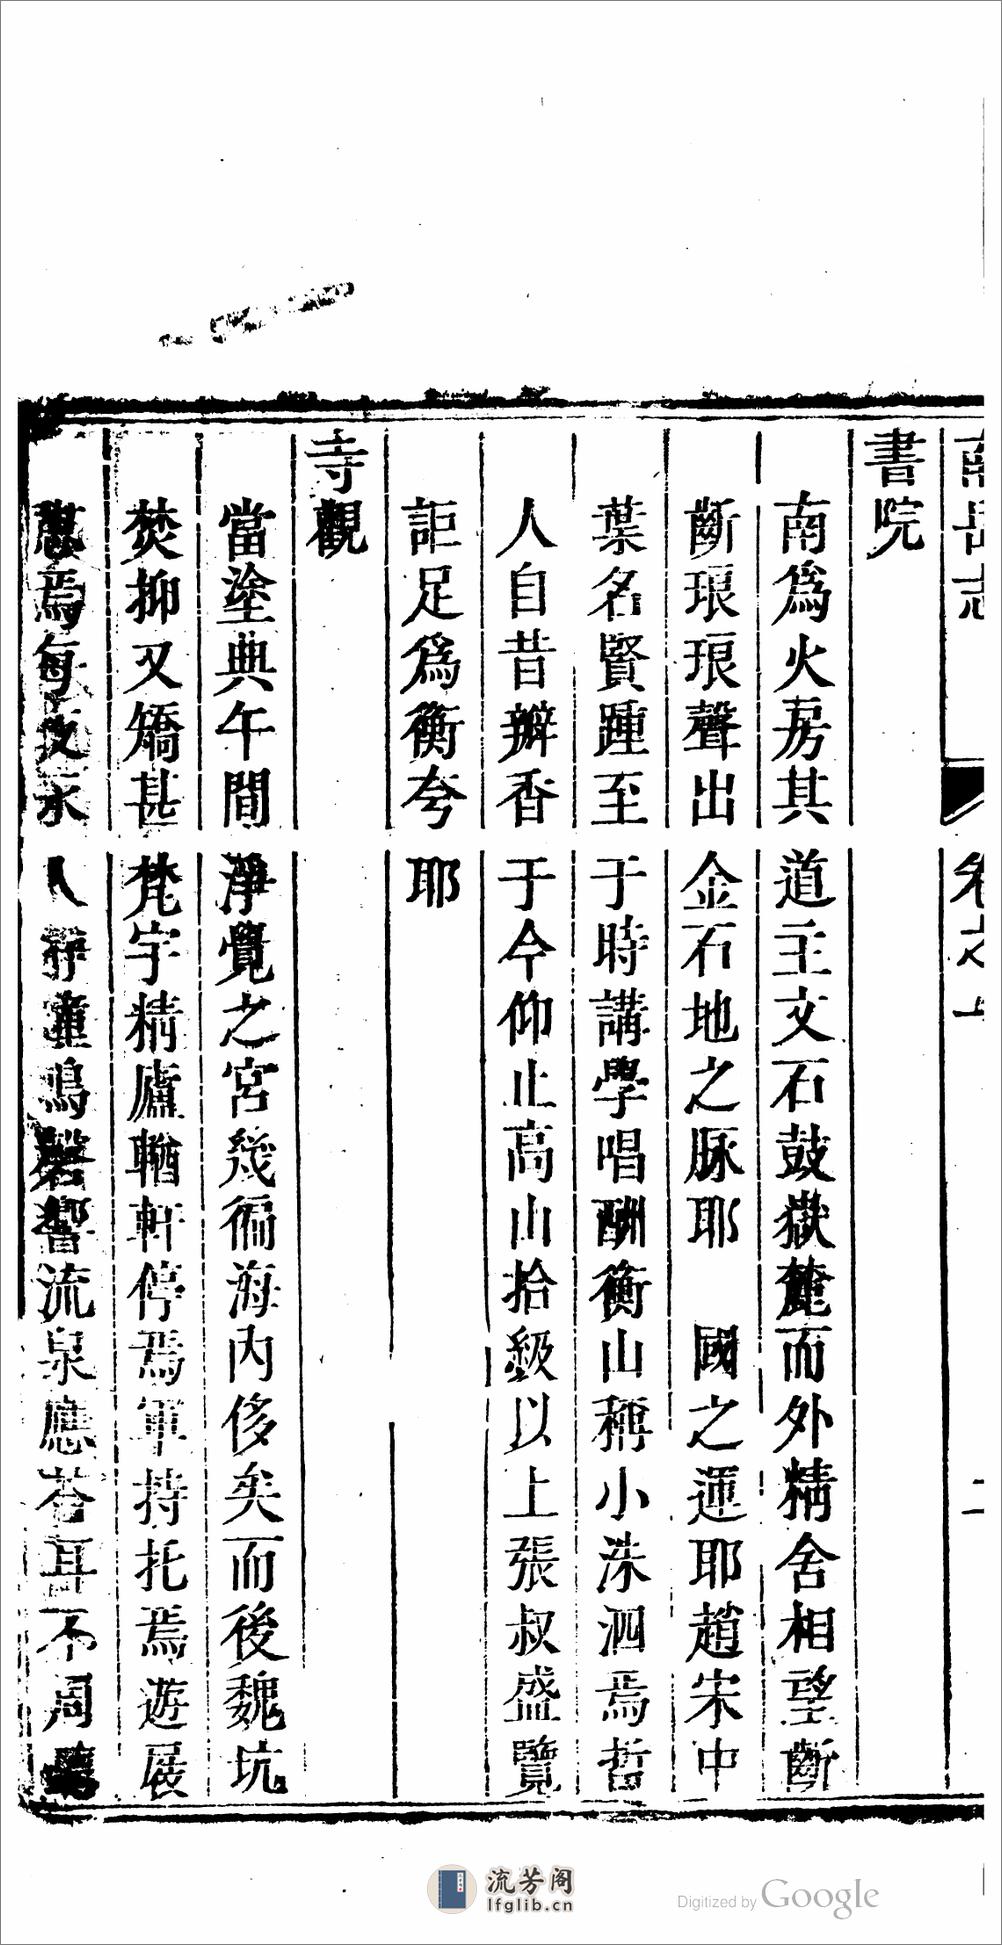 南岳志 卷之上 二
書院
南爲火房其道主文石鼓嶽麓而外精舍相望斷
斷琅琅聲出金石地之脉耶 國之運耶趙宋中
葉名賢踵至于時講學唱酬衡山稱小洙泗焉哲
人自昔瓣香于今仰止高山拾級以上張叔盛覽
詎足爲衡夸耶
寺觀
當塗典午間淨覺之宮幾徧海內侈矣而後魏坑
焚抑又矯甚梵宇精廬輶軒停焉軍持托焉遊展
憇焉每夜永人靜童鳴磬響流泉應答耳不周
流芳阁
lfglib.cn
Digitized by Google